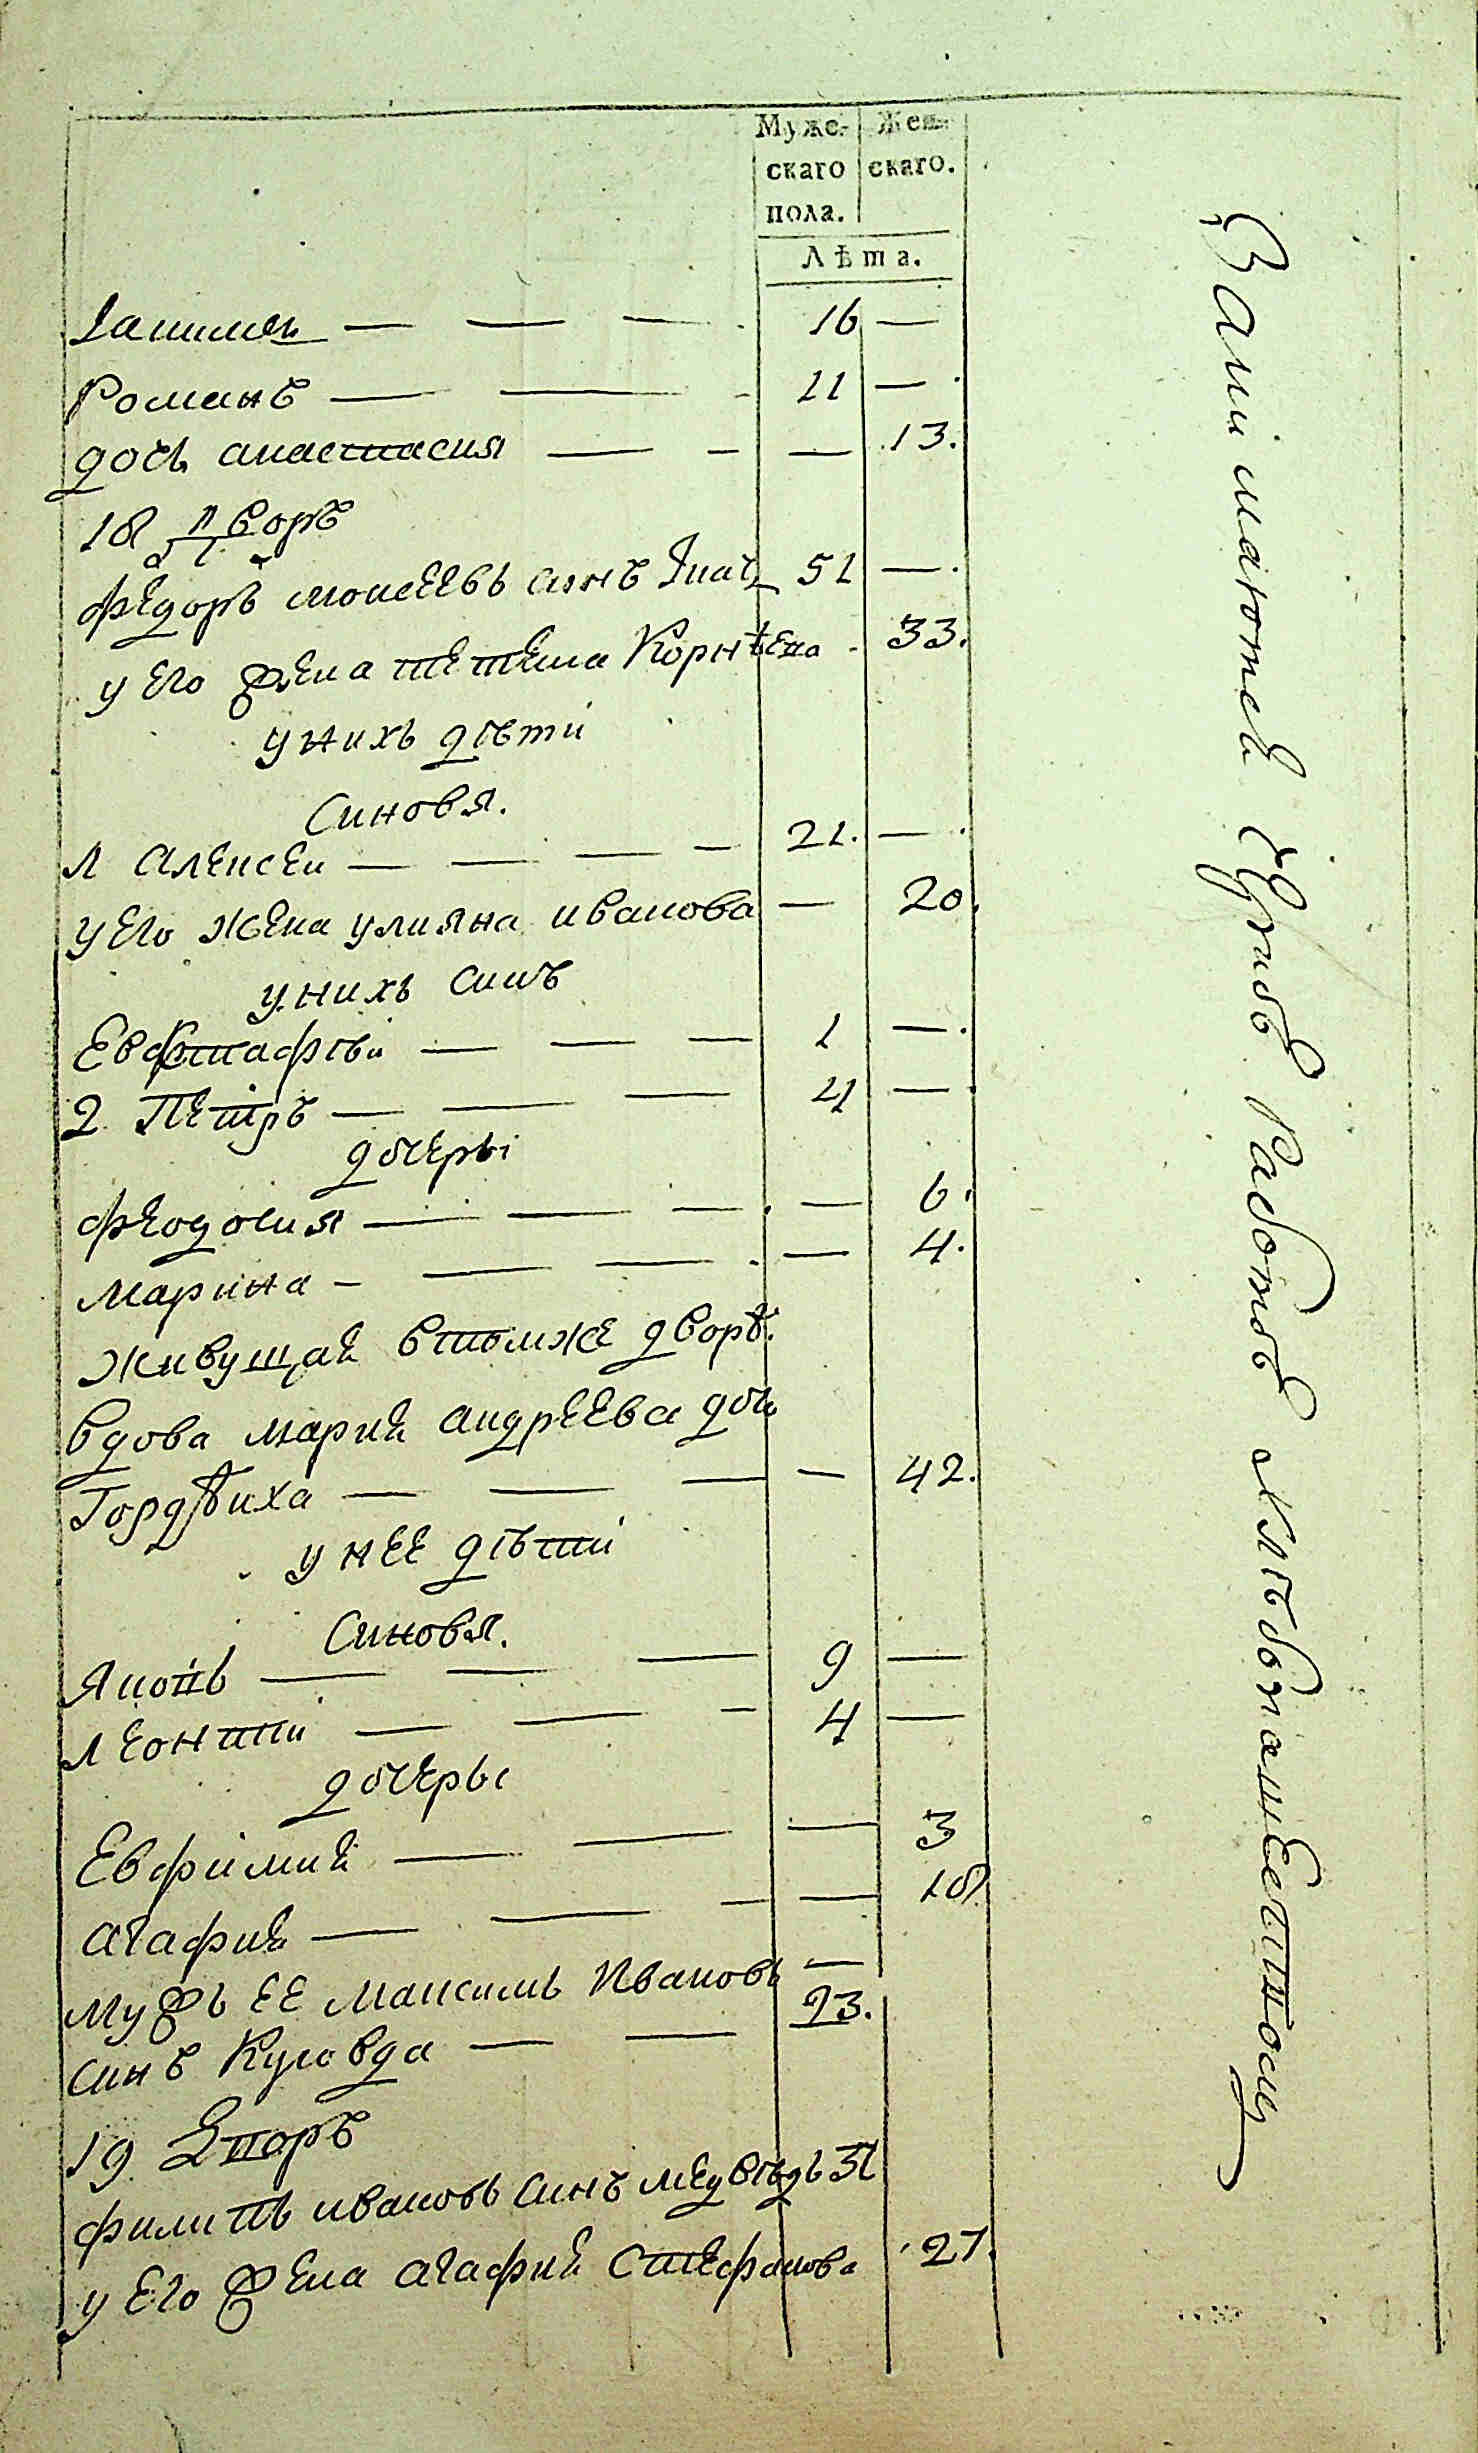 Муже- Жен-
скаго скаго.
пола.
Лѣта.
Данилей 16 —
Романъ 11 —
дочь анастасия — 13.
18 дворъ
Федоръ моисеевъ синъ 51 —
у его жена Корнѣева 33.
у нихъ дѣти
Синовя.
1 алексеи 21. —
у его жена улияна иванова — 20.
у нихъ синъ
Евфтафѣи 1 —
2 Петръ 4 —
дочеры
феодосия — 6.
марина — 4.
живущая втомже дворѣ.
вдова мария андреева дочь
Гордѣиха — 42.
у нее дѣти
Синовя.
Яковъ 9 —
леонтии 4 —
дочеры
Евфимия — 3
агафия — 18
мужъ ее максимъ Ивановъ —
синъ 23.
19 Дворъ
филипъ ивановъ синъ медвѣдь 31
у его жена агафия Стефанова 27.
Занимаютса Едино работою хлѣбопашественною